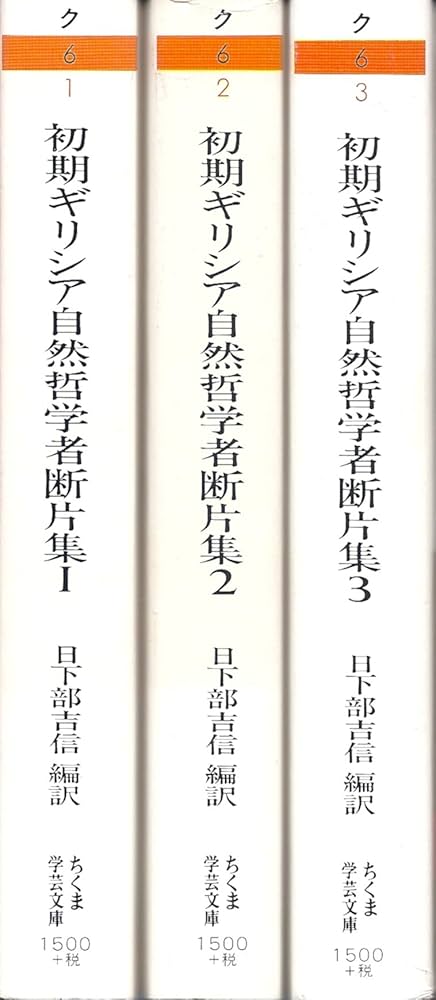 ク
6
1
初期ギリシア自然哲学者断片集1
日下部吉信 編訳
ちくま
学芸文庫
1500
+税
ク
6
2
初期ギリシア自然哲学者断片集2
日下部吉信 編訳
ちくま
学芸文庫
1500
+税
ク
6
3
初期ギリシア自然哲学者断片集3
日下部吉信 編訳
ちくま
学芸文庫
1500
+税